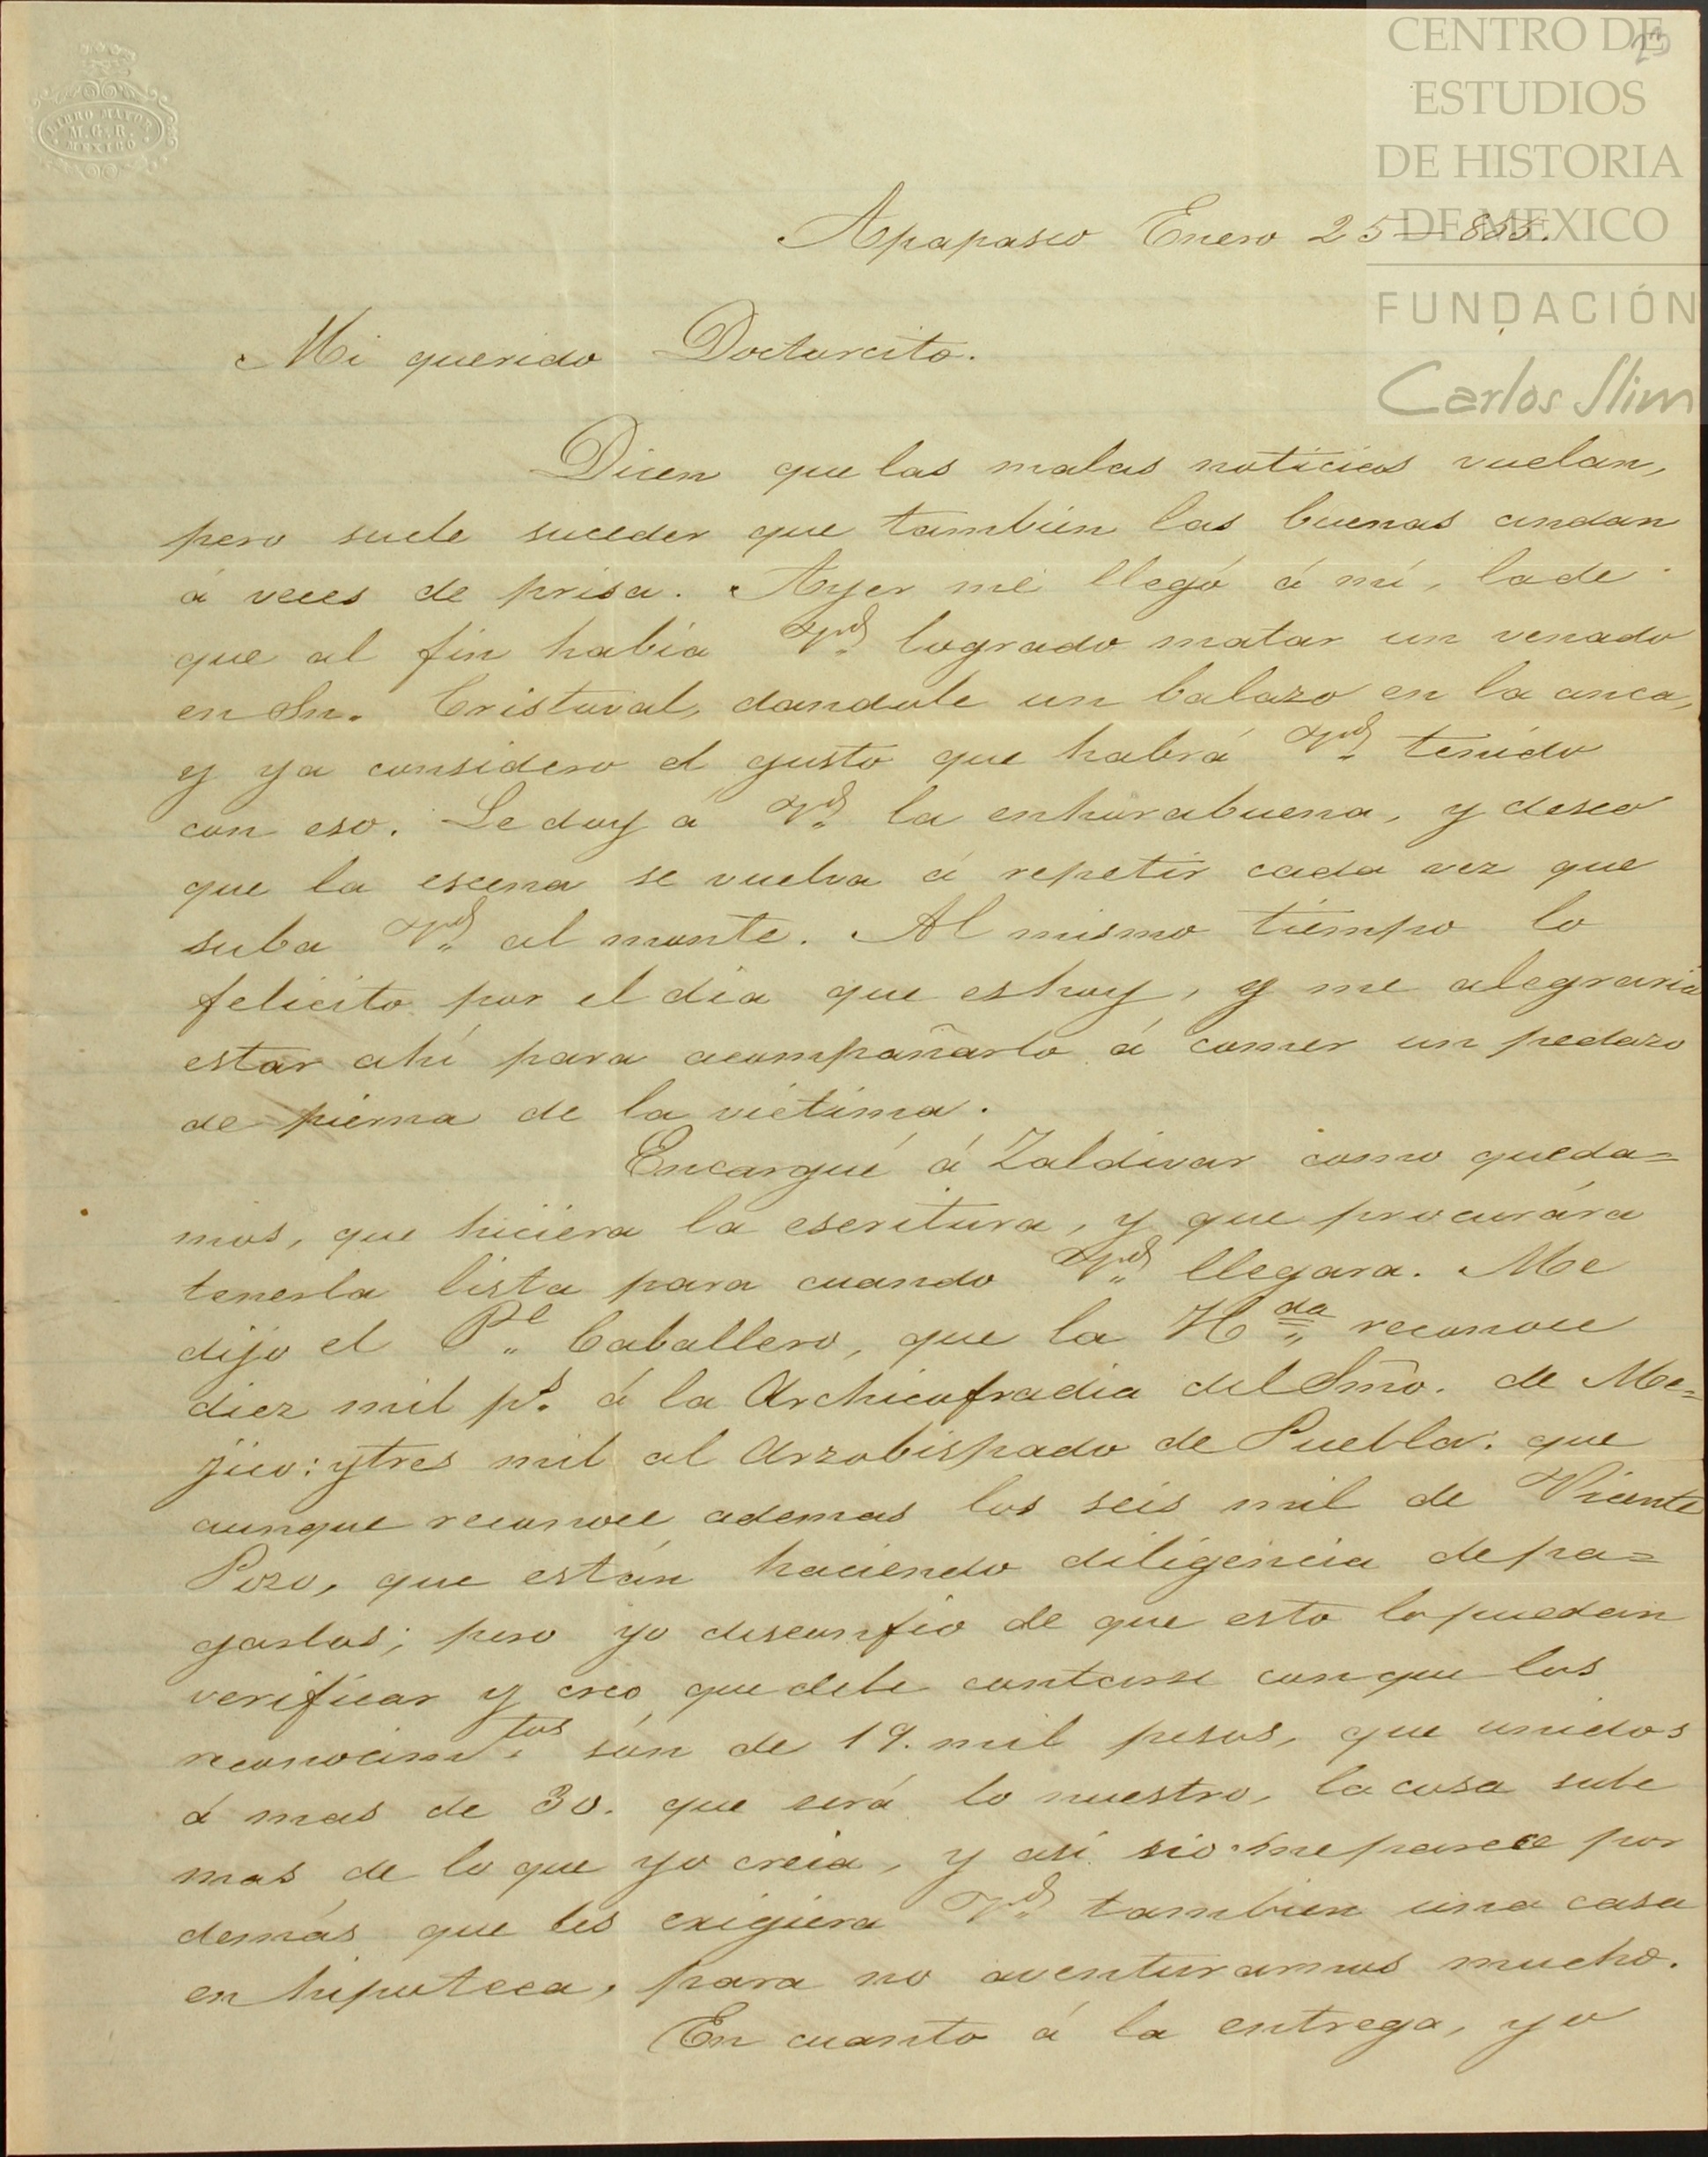 CENTRO DE
ESTUDIOS
DE HISTORIA
DE MEXICO
FUNDACIÓN
Carlos Slim
LIBRO MAYOR
M.G.R.
MEXICO
Apapasco Enero 25—855.
Mi querido Doctorcito.
Dicen que las malas noticias vuelan,
pero suele suceder que tambien las buenas andan
á veces de prisa. Ayer me llegó á mí, la de
que al fin habia Vd. logrado matar un venado
en Sn. Cristoval, dandole un balazo en la anca,
y ya considero el gusto que habrá Vd. tenido
con eso. Le doy á Vd. la enhorabuena, y deseo
que la escena se vuelva á repetir cada vez que
suba Vd. al monte. Al mismo tiempo lo
felicito por el dia que es hoy, y me alegraria
estar ahí para acompañarlo á comer un pedazo
de pierna de la victima.
Encargué á Zaldivar como queda=
mos, que hiciera la escritura, y que procurára
tenerla lista para cuando Vd. llegara. Me
dijo el Pe. Caballero, que la Hda. reconoce
diez mil ps. á la Archicofradia del Smo. de Me=
jico: y tres mil al Arzobispado de Puebla: que
aunque reconoce ademas los seis mil de Vicente
Pozo, que están haciendo diligencia de pa=
garlos; pero yo desconfio de que esto lo puedan
verificar y creo que debe contarse con que los
reconocimtos. són de 19. mil pesos, que unidos
á mas de 30. que será lo nuestro, la cosa sube
mas de lo que yo creia, y asi no me parece por
demás que les exigiera Vd. tambien una casa
en hipoteca, para no aventurarnos mucho.
En cuanto á la entrega, yo